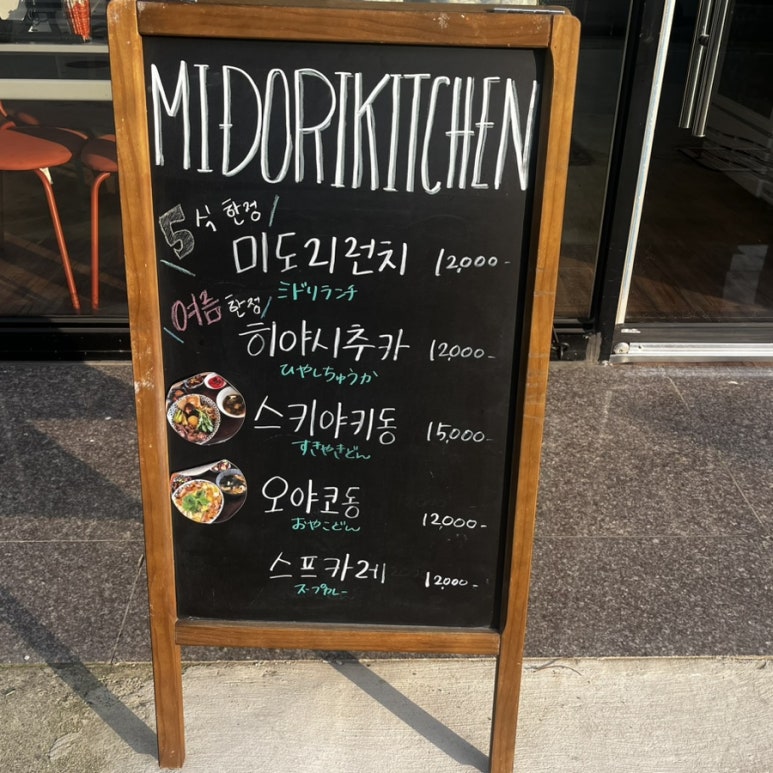 MIDORIKITCHEN
5식 한정
미도리런치 12,000-
ミドリランチ
여름 한정
히야시추카 12,000-
ひやしちゅうか
스키야키동 15,000-
すきやきどん
오야코동 12,000-
おやこどん
스프카레 12,000-
スープカレー